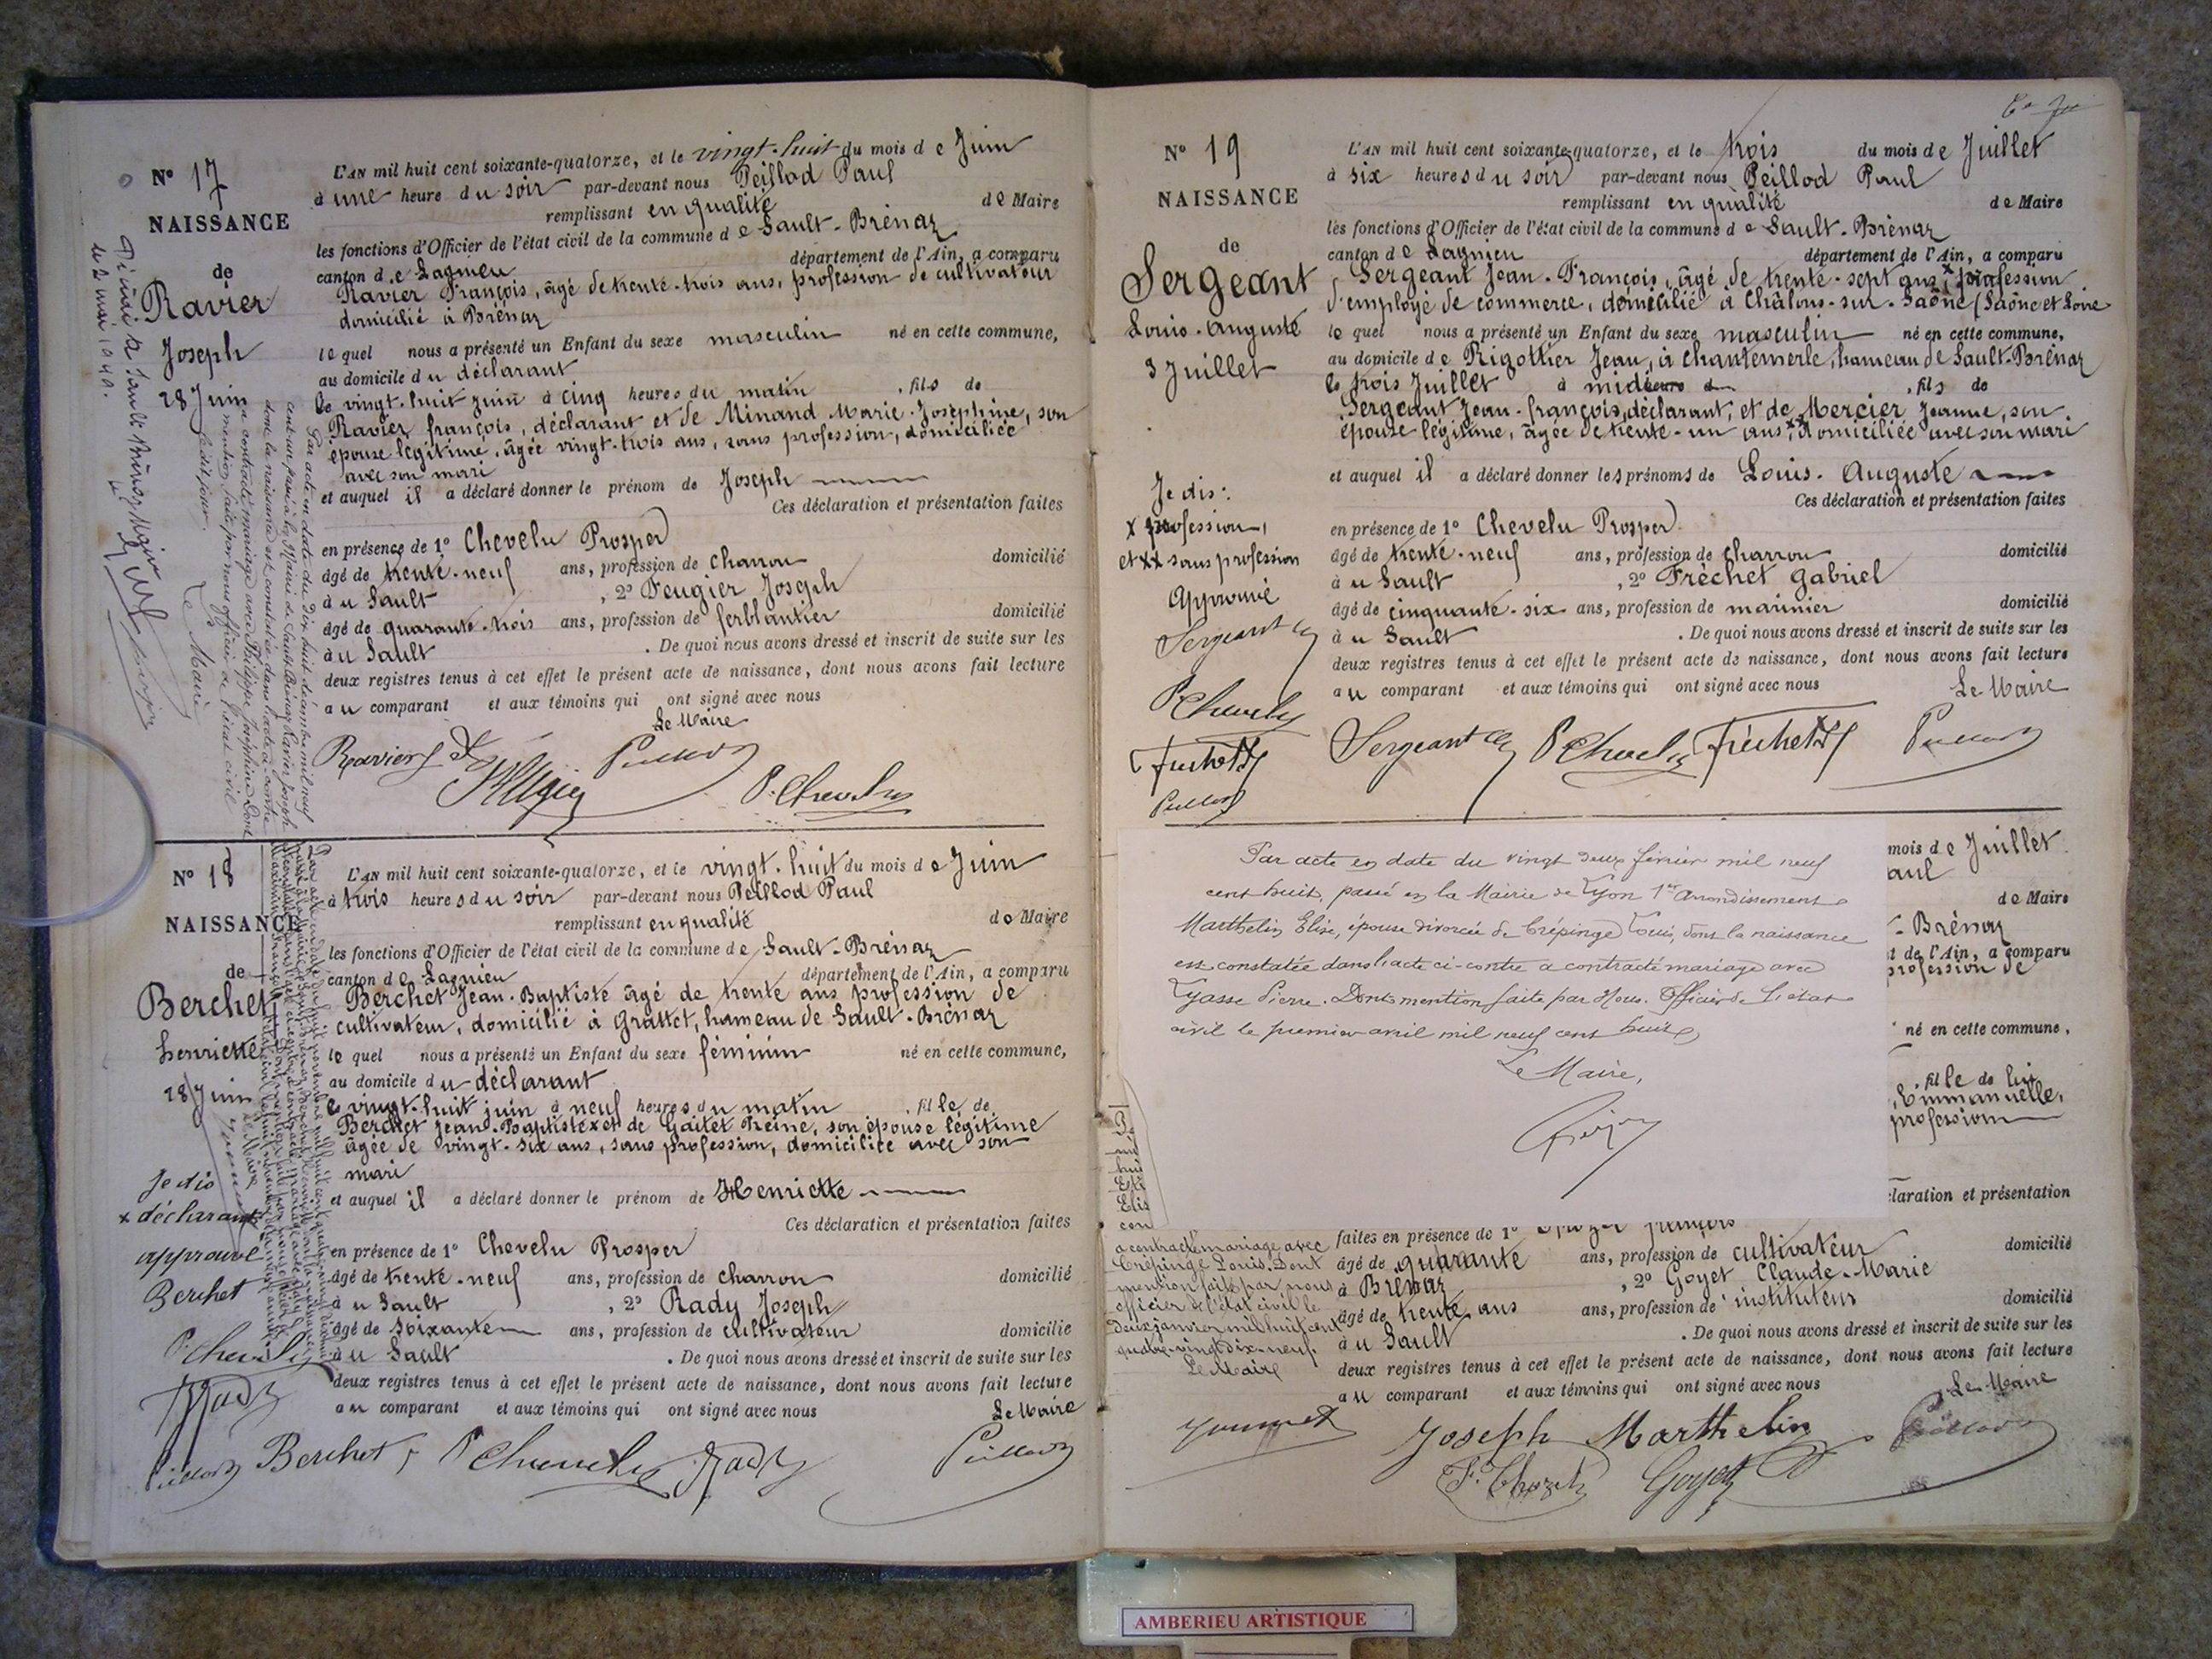 N° 17
NAISSANCE
de
Ravier
Joseph
28 Juin
L'AN mil huit cent soixante-quatorze, et le vingt-huit du mois de Juin
à une heure du soir par-devant nous Peillod Paul
remplissant en qualité de Maire
les fonctions d'Officier de l'état civil de la commune de Sault-Brénaz
canton de Lagnieu département de l'Ain, a comparu
Ravier François, âgé de trente-trois ans, profession de cultivateur
domicilié à Brénaz
lequel nous a présenté un Enfant du sexe masculin né en cette commune,
au domicile du déclarant
le vingt-huit juin à cinq heures du matin, fils de
Ravier françois, déclarant et de Minand Marie-Joséphine, son
épouse légitime, âgée vingt-trois ans, sans profession, domiciliée
avec son mari
et auquel il a déclaré donner le prénom de Joseph
Ces déclaration et présentation faites
en présence de 1° Chevelu Prosper
âgé de trente-neuf ans, profession de charron domicilié
à u Sault, 2° Feugier Joseph
âgé de quarante-trois ans, profession de ferblantier domicilié
à u Sault. De quoi nous avons dressé et inscrit de suite sur les
deux registres tenus à cet effet le présent acte de naissance, dont nous avons fait lecture
au comparant et aux témoins qui ont signé avec nous
Le Maire
P. Chevelu
N° 18
NAISSANCE
de
Berchet
henriette
28 Juin
Je dis
x déclarant
approuvé
Berchet
L'AN mil huit cent soixante-quatorze, et le vingt-huit du mois de Juin
à trois heures du soir par-devant nous Peillod Paul
remplissant en qualité de Maire
les fonctions d'Officier de l'état civil de la commune de Sault-Brénaz
canton de Lagnieu département de l'Ain, a comparu
Berchet Jean-Baptiste âgé de trente ans profession de
cultivateur, domicilié à Grattet, hameau de Sault-Brénaz
lequel nous a présenté un Enfant du sexe féminin né en cette commune,
au domicile du déclarant
le vingt-huit juin à neuf heures du matin, fille de
Berchet Jean-Baptiste x et de Gaitet Reine, son épouse légitime
âgée de vingt-six ans, sans profession, domiciliée avec son
mari
et auquel il a déclaré donner le prénom de Henriette
Ces déclaration et présentation faites
en présence de 1° Chevelu Prosper
âgé de trente-neuf ans, profession de charron domicilié
à u Sault, 2° Rady Joseph
âgé de soixante ans, profession de cultivateur domicilié
à u Sault. De quoi nous avons dressé et inscrit de suite sur les
deux registres tenus à cet effet le présent acte de naissance, dont nous avons fait lecture
au comparant et aux témoins qui ont signé avec nous
Le Maire
Berchet P Chevelu Rady
N° 19
NAISSANCE
de
Sergeant
Louis-Auguste
3 Juillet
Je dis:
x profession,
et xx sans profession
Approuvé
Sergeant
L'AN mil huit cent soixante-quatorze, et le trois du mois de Juillet
à six heures du soir par-devant nous Peillod Paul
remplissant en qualité de Maire
les fonctions d'Officier de l'état civil de la commune de Sault-Brénaz
canton de Lagnieu département de l'Ain, a comparu
Sergeant Jean-François, âgé de trente-sept ans, x profession
d'employé de commerce, domicilié à Châlons-sur-Saône (Saône et Loire
lequel nous a présenté un Enfant du sexe masculin né en cette commune,
au domicile de Rigottier Jean, à chantemerle, hameau de Sault-Brénaz
le trois Juillet à midi heure d, fils de
Sergeant Jean-françois, déclarant, et de Mercier Jeanne, son
épouse légitime, âgée de trente-un ans, xx domiciliée avec son mari
et auquel il a déclaré donner les prénoms de Louis-Auguste
Ces déclaration et présentation faites
en présence de 1° Chevelu Prosper
âgé de trente-neuf ans, profession de charron domicilié
à u Sault, 2° Fréchet Gabriel
âgé de cinquante-six ans, profession de marinier domicilié
à u Sault. De quoi nous avons dressé et inscrit de suite sur les
deux registres tenus à cet effet le présent acte de naissance, dont nous avons fait lecture
au comparant et aux témoins qui ont signé avec nous
Le Maire
Sergeant P Chevelu
Par acte en date du vingt deux février mil neuf
cent huit, passé en la Mairie de Lyon 1er Arrondissement
Marthelin Elise, épouse divorcée de Crépinge Louis, dont la naissance
est constatée dans l'acte ci-contre a contracté mariage avec
Lyasse Pierre. Dont mention faite par Nous. Officier de l'état
civil le premier avril mil neuf cent huit
Le Maire,
mois de Juillet
aul
de Maire
-Brénaz
t de l'Ain, a comparu
profession de
né en cette commune,
, fille de lui
, Emmanuelle,
profession
claration et présentation
faites en présence de 1°
âgé de quarante ans, profession de cultivateur domicilié
à Brénaz, 2° Goyet Claude-Marie
âgé de trente ans ans, profession de instituteur domicilié
à u Sault. De quoi nous avons dressé et inscrit de suite sur les
deux registres tenus à cet effet le présent acte de naissance, dont nous avons fait lecture
au comparant et aux témoins qui ont signé avec nous
Le Maire
a contracté mariage avec
Crépinge Louis. Dont
mention faite par nous
officier de l'état civil le
deux janvier mil huit cent
quatre-vingt-dix-neuf.
Le Maire
Joseph Marthelin
Goyet
AMBERIEU ARTISTIQUE